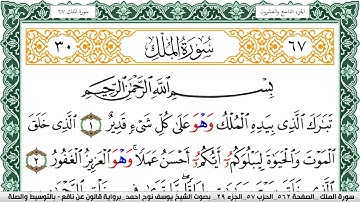 سورة الملك ٦٧
الجزء التاسع والعشرون
٣٠ سُورَةُ المُلْكِ ٦٧
بِسْمِ اللَّهِ الرَّحْمَٰنِ الرَّحِيمِ
تَبَٰرَكَ الَّذِي بِيَدِهِ الْمُلْكُ وَهْوَ عَلَىٰ كُلِّ شَيْءٍ قَدِيرٌ ١ الَّذِي خَلَقَ
الْمَوْتَ وَالْحَيَوٰةَ لِيَبْلُوَكُمُۥ أَيُّكُمُۥ أَحْسَنُ عَمَلًا وَهْوَ الْعَزِيزُ الْغَفُورُ ٢
سورة الملك . الصفحة ٥٦٢ الحزب ٥٧ الجزء ٢٩ . بصوت الشيخ يوسف نوح احمد . برواية قالون عن نافع - بالتوسيط والصلة